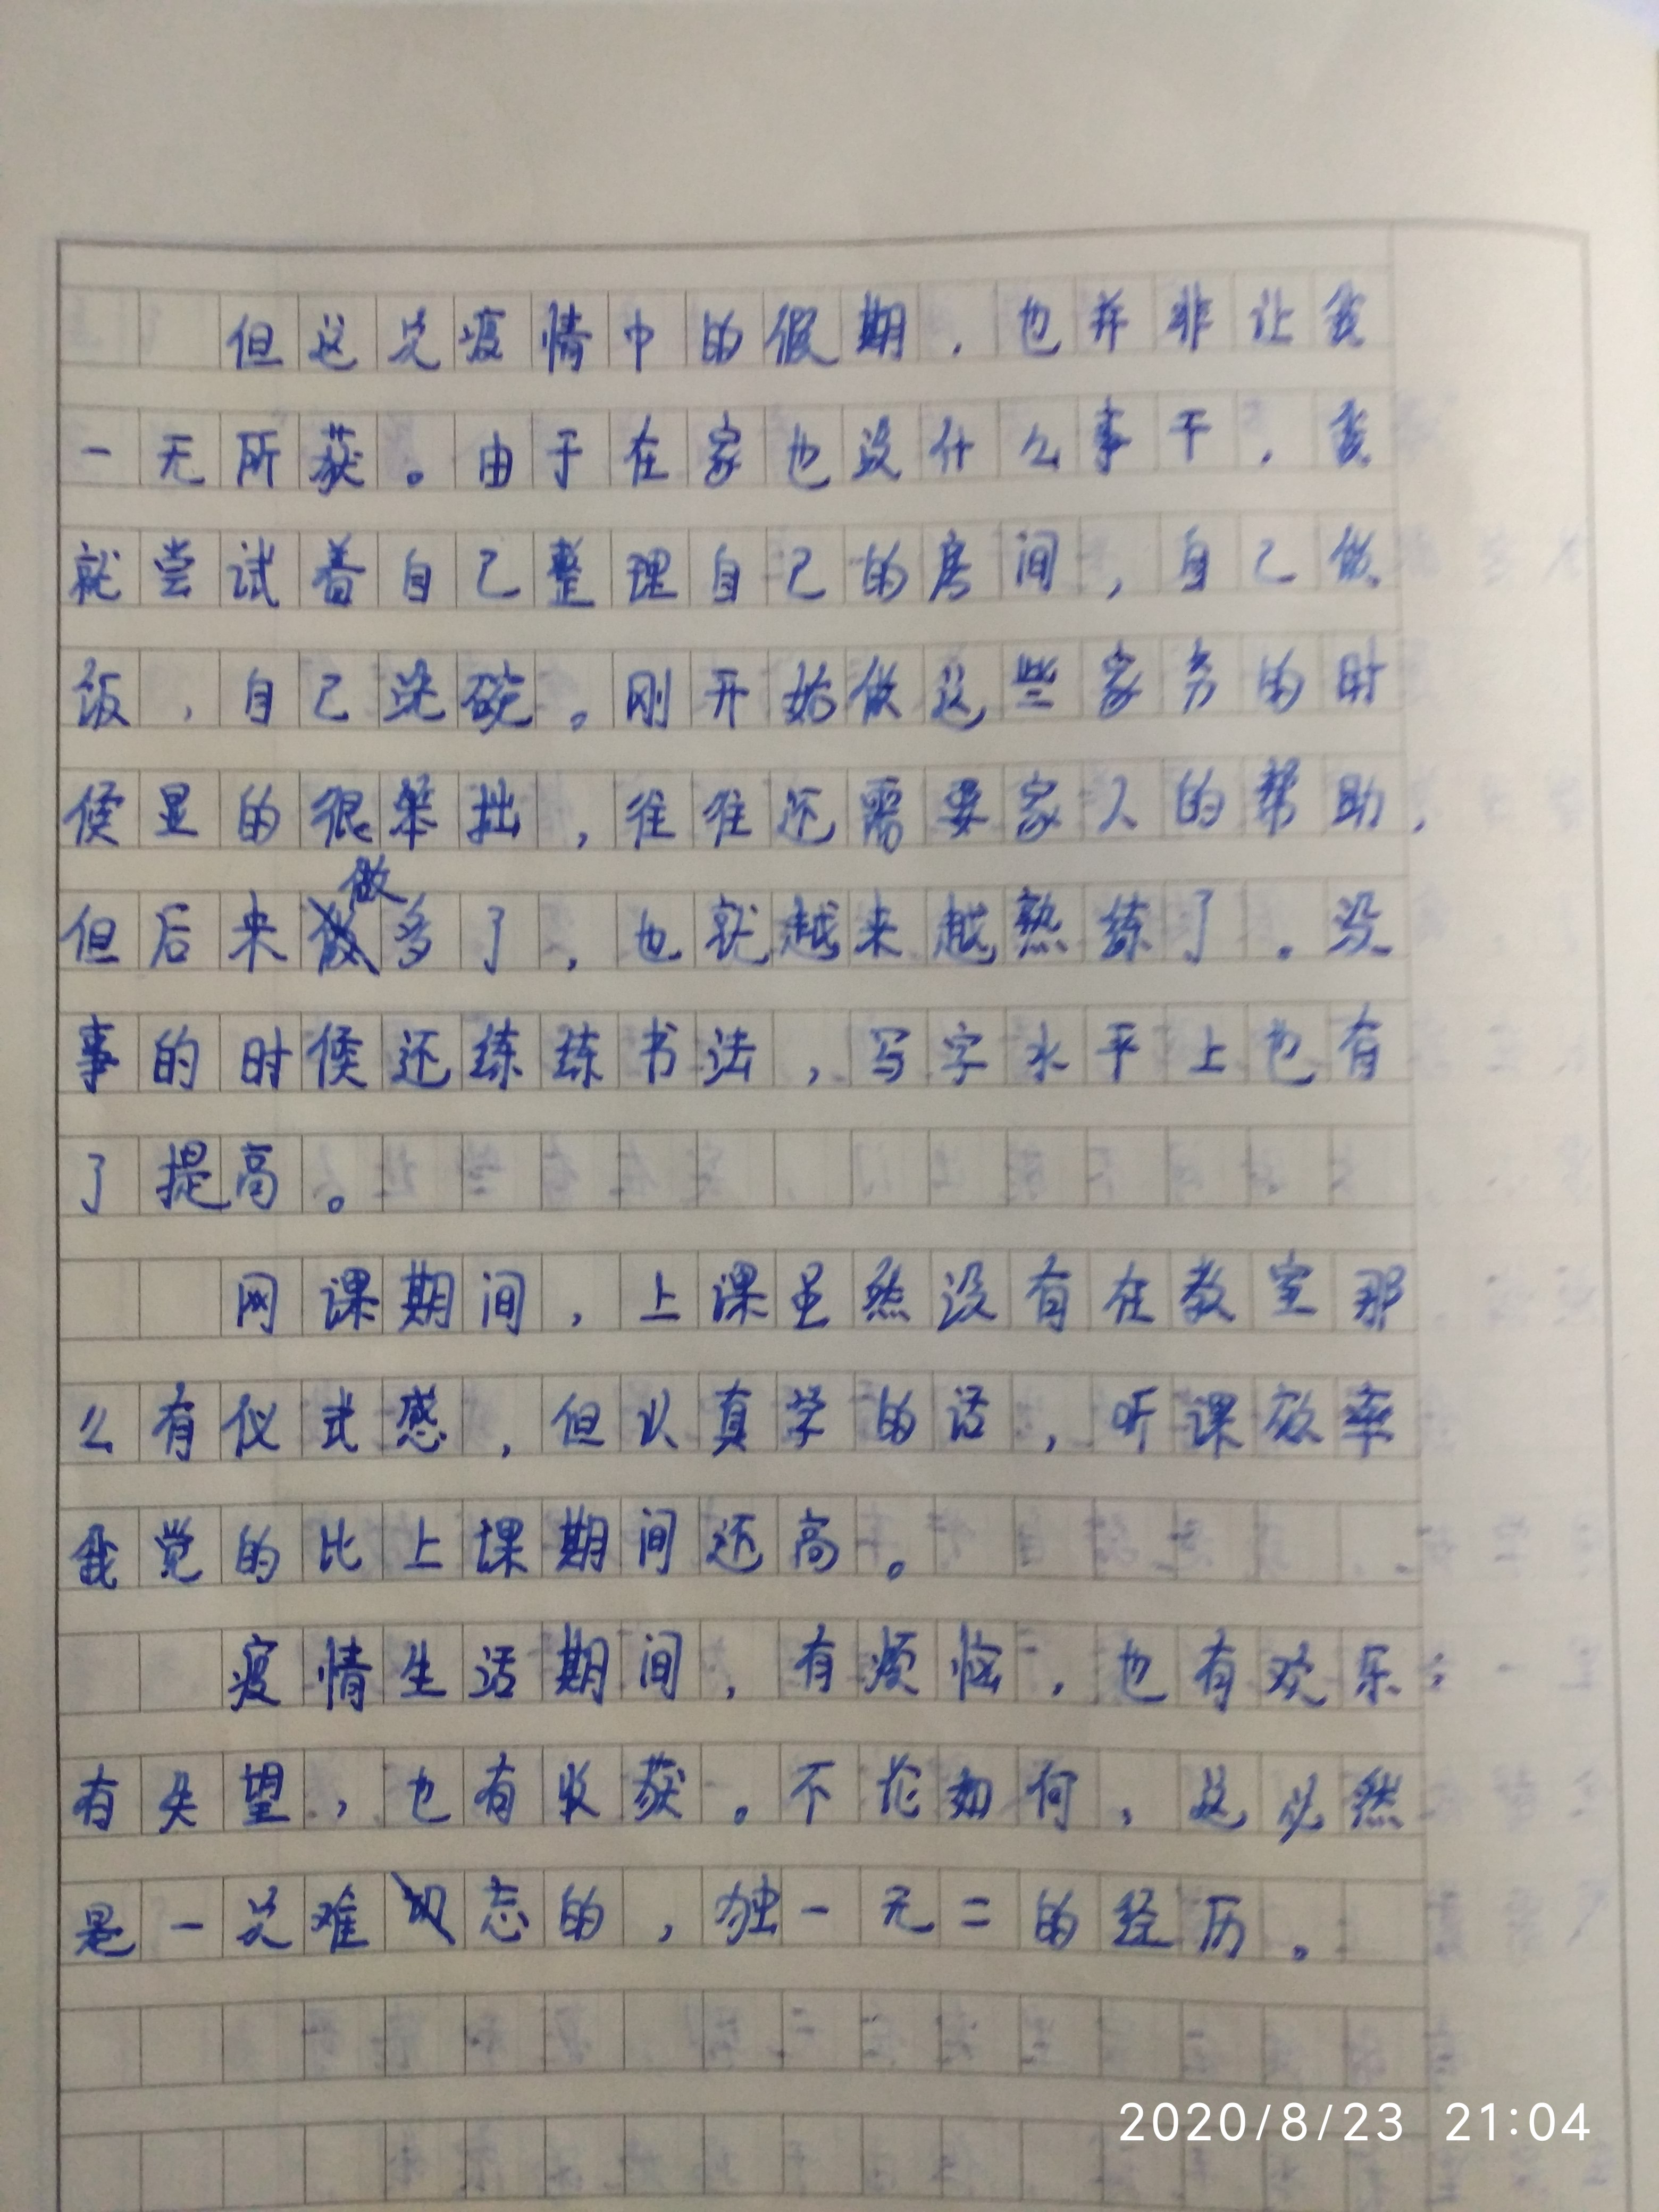 但这次疫情中的假期，也并非让我
一无所获。由于在家也没什么事干，我
就尝试着自己整理自己的房间，自己做
饭，自己洗碗。刚开始做这些家务的时
候显的很笨拙，往往还需要家人的帮助，
但后来做多了，也就越来越熟练了。没
事的时候还练练书法，写字水平上也有
了提高。
网课期间，上课虽然没有在教室那
么有仪式感，但认真学的话，听课效率
我觉的比上课期间还高。
疫情生活期间，有烦恼，也有欢乐；
有失望，也有收获。不论如何，这必然
是一次难忘的，独一无二的经历。
2020/8/23 21:04